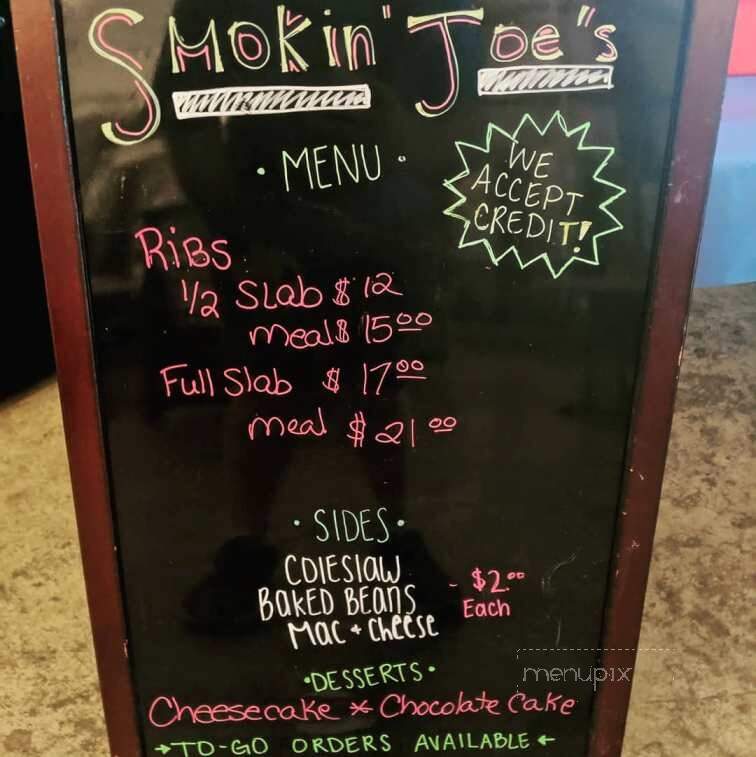 Smokin' Joe"s
• MENU •
WE
ACCEPT
CREDIT!
RiBS
1/2 Slab $ 12
meal $ 15 00
Full Slab $ 17 00
meal $ 21 00
• SIDES •
COleslaw
BaKED BEANS
Mac + Cheese
- $2.00
Each
• DESSERTS •
Cheesecake * Chocolate Cake
→ TO-GO ORDERS AVAILABLE ←
menupix